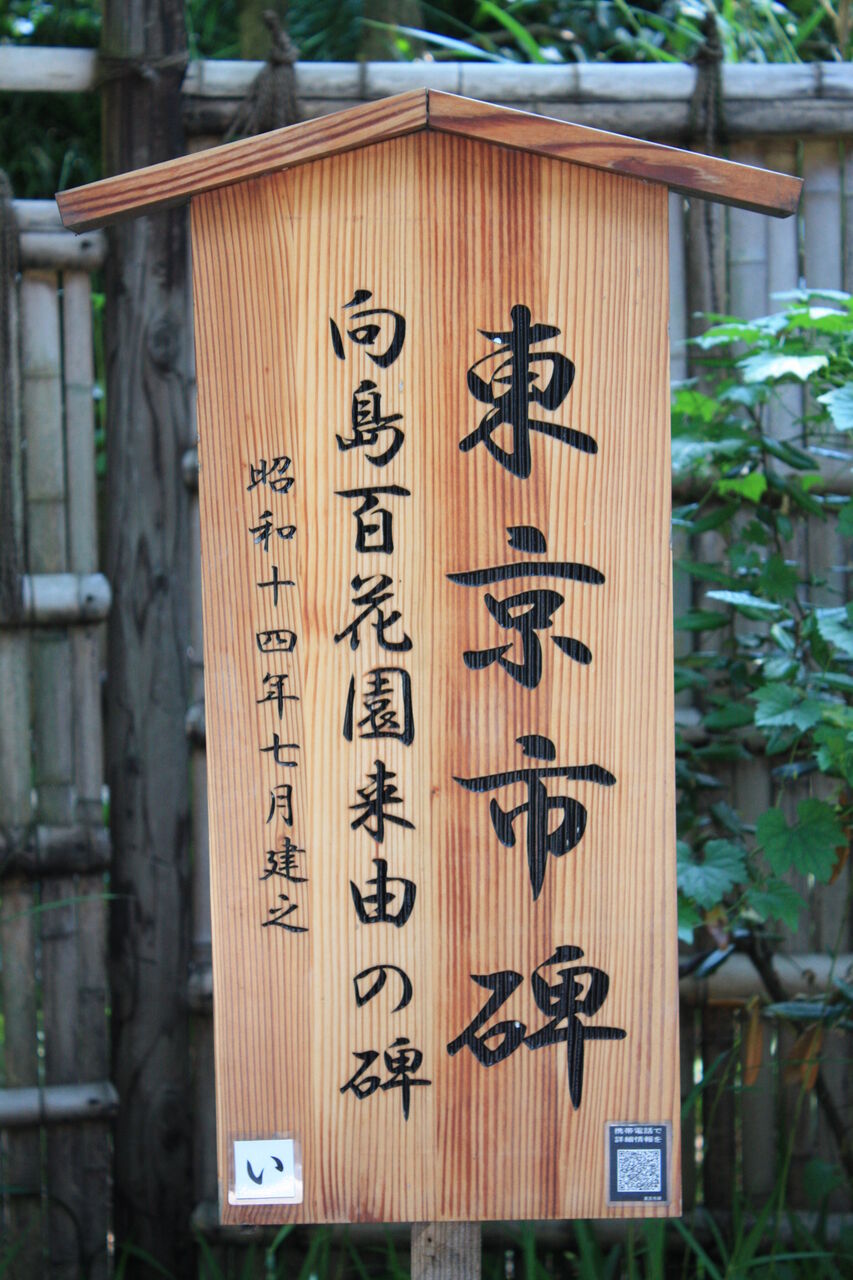 東京市碑
向島百花園来由の碑
昭和十四年七月建之
い
携帯電話で
詳細情報を